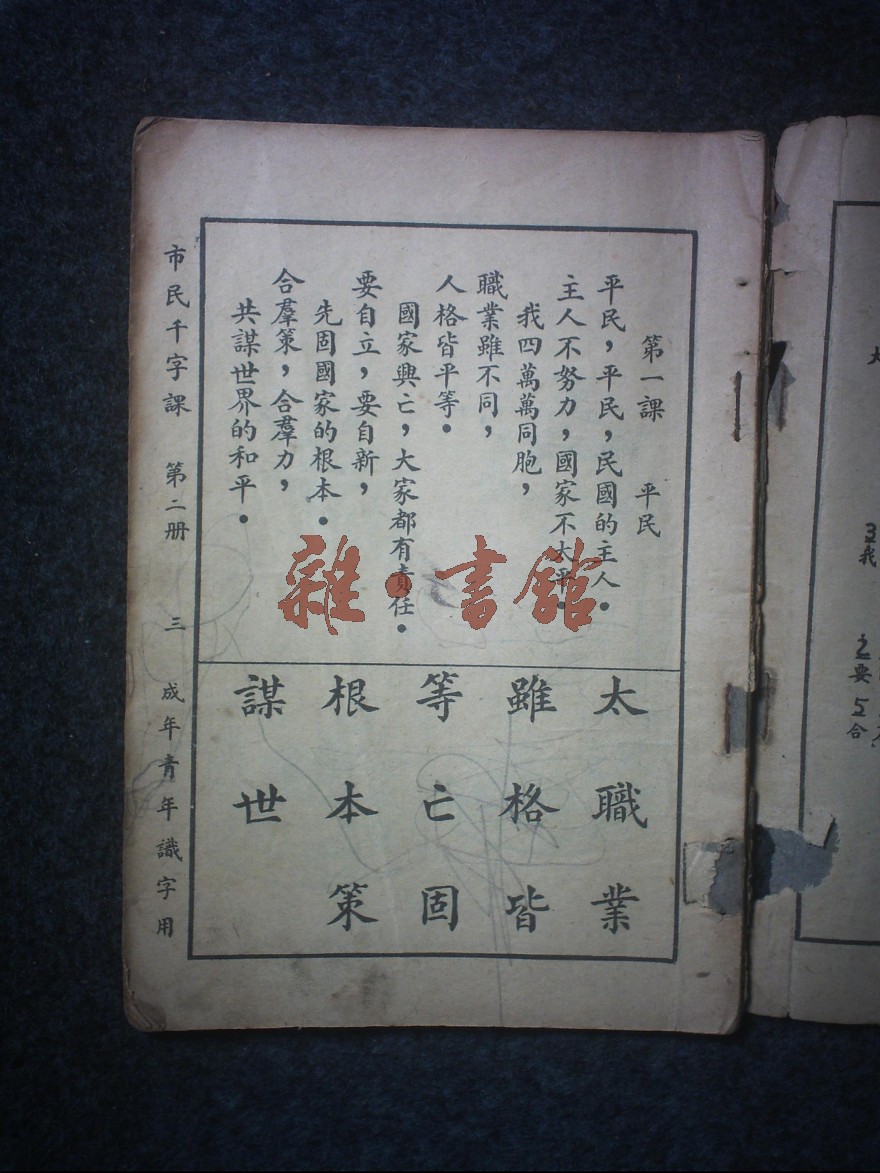 第一課　平民
平民，平民，民國的主人．
主人不努力，國家不太平．
我四萬萬同胞，
職業雖不同，
人格皆平等．
國家興亡，大家都有責任．
要自立，要自新，
先固國家的根本．
合羣策，合羣力，
共謀世界的和平．
太職業
雖格皆
等亡固
根本策
謀世
市民千字課　第二册　三　成年青年識字用
雜·書館
3我
2要
5合